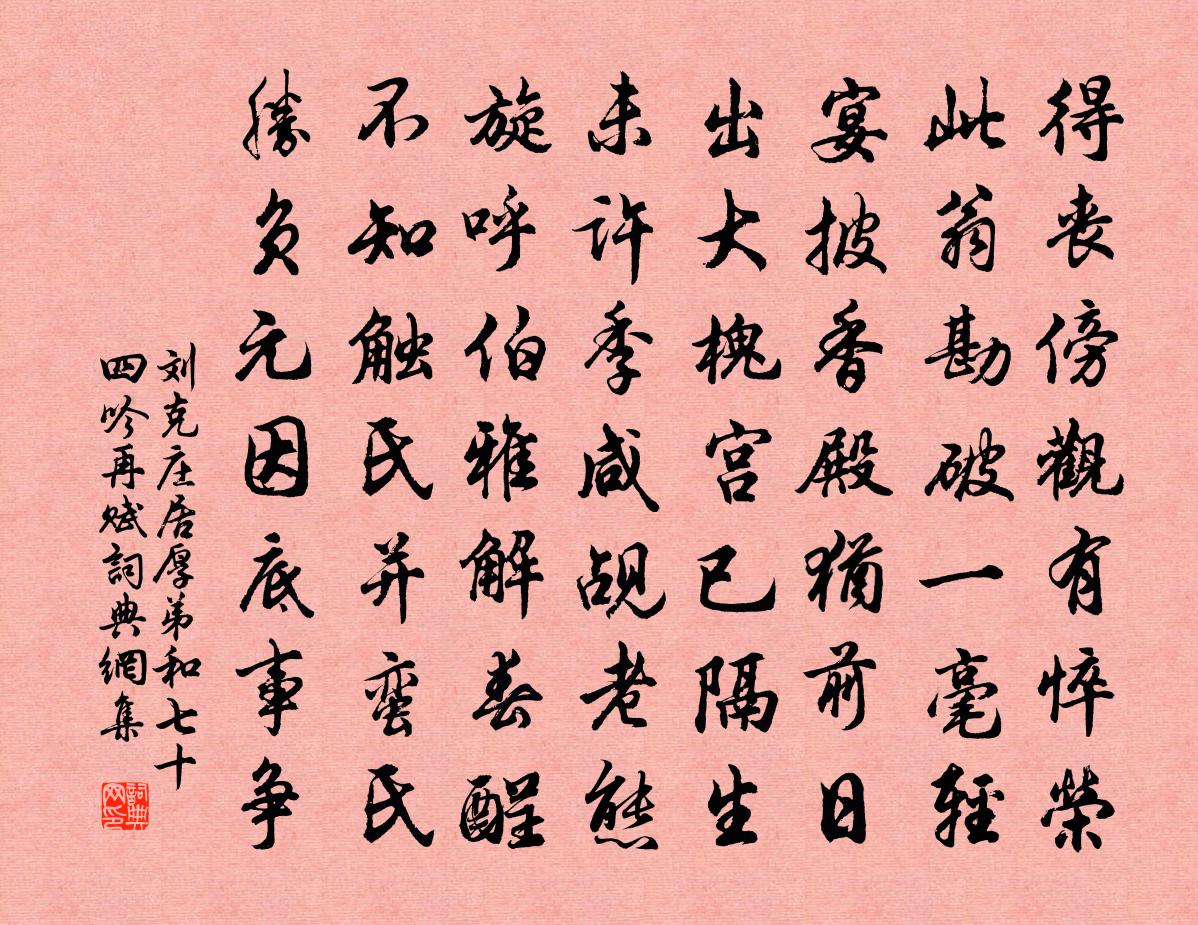 得丧傍觀有悴榮
此翁勘破一毫輕
宴披香殿猶前日
出大槐宫已隔生
未许季咸觇老熊
旋呼伯雅解春酲
不知触氏并蛮氏
勝负元因底事争
刘克庄居厚弟和七十
四吟再赋詞典網集
詞典网印